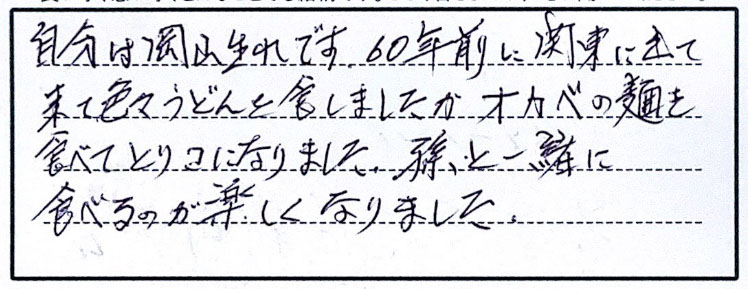 自分は岡山生れです。60年前に関東に出て
来て色々うどんを食しましたが オカベの麺を
食べてとりこになりました。孫、と一緒に
食べるのが楽しくなりました。